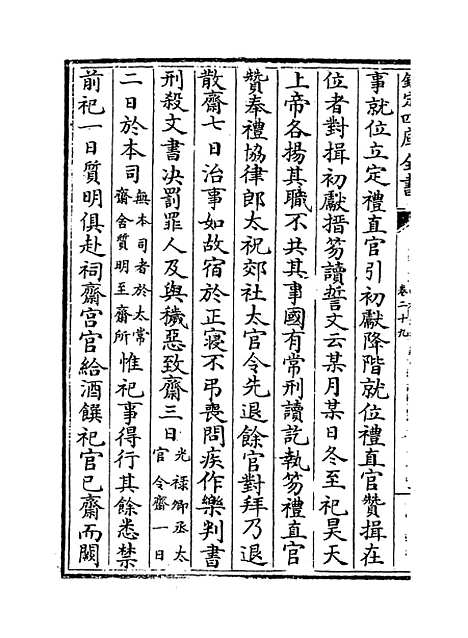 欽定四庫全書
卷二十九
事就位立定禮直官引初獻降階就位禮直官贊揖在
位者對揖初獻搢笏讀誓文云某月某日冬至祀昊天
上帝各揚其職不共其事國有常刑讀訖執笏禮直官
贊奉禮協律郎太祝郊社太官令先退餘官對拜乃退
散齋七日治事如故宿於正寢不弔喪問疾作樂判書
刑殺文書決罰罪人及與穢惡致齋三日光祿卿丞太官令齋一日
二日於本司無本司者於太常齋舍質明至齋所惟祀事得行其餘悉禁
前祀一日質明俱赴祠齋宫官給酒饌祀官已齋而闕